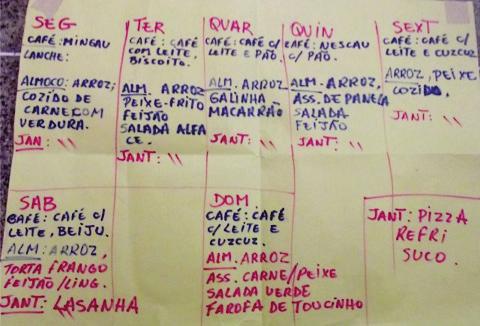 SEG
CAFÉ: MINGAU
LANCHE:
ALMOCO: ARROZ;
COZIDO DE
CARNE COM
VERDURA.
JAN: \\
TER
CAFÉ: CAFÉ
COM LEITE,
BISCOITO.
ALM. ARROZ
PEIXE-FRITO
FEIJÃO
SALADA ALFA
CE.
JANT: \\
QUAR
CAFÉ: CAFÉ C/
LEITE E PÃO.
ALM: ARROZ
GALINHA
MACARRÃO
JANT: \\
QUIN
CAFÉ: NESCAU
C/ PÃO.
ALM: ARROZ,
ASS. DE PANELA
SALADA
FEIJÃO
JANT: \\
SEXT
CAFÉ: CAFÉ C/
LEITE E CUZCUZ
ARROZ, PEIXE
COZIDO.
JANT: \\
SAB
CAFÉ: CAFÉ C/
LEITE, BEIJU.
ALM: ARROZ,
TORTA FRANGO
FEIJÃO/LING.
JANT: LASANHA
DOM
CAFÉ: CAFÉ
C/ LEITE E
CUZCUZ.
ALM: ARROZ
ASS. CARNE/PEIXE
SALADA VERDE
FAROFA DE TOUCINHO
JANT: PIZZA
REFRI
SUCO.